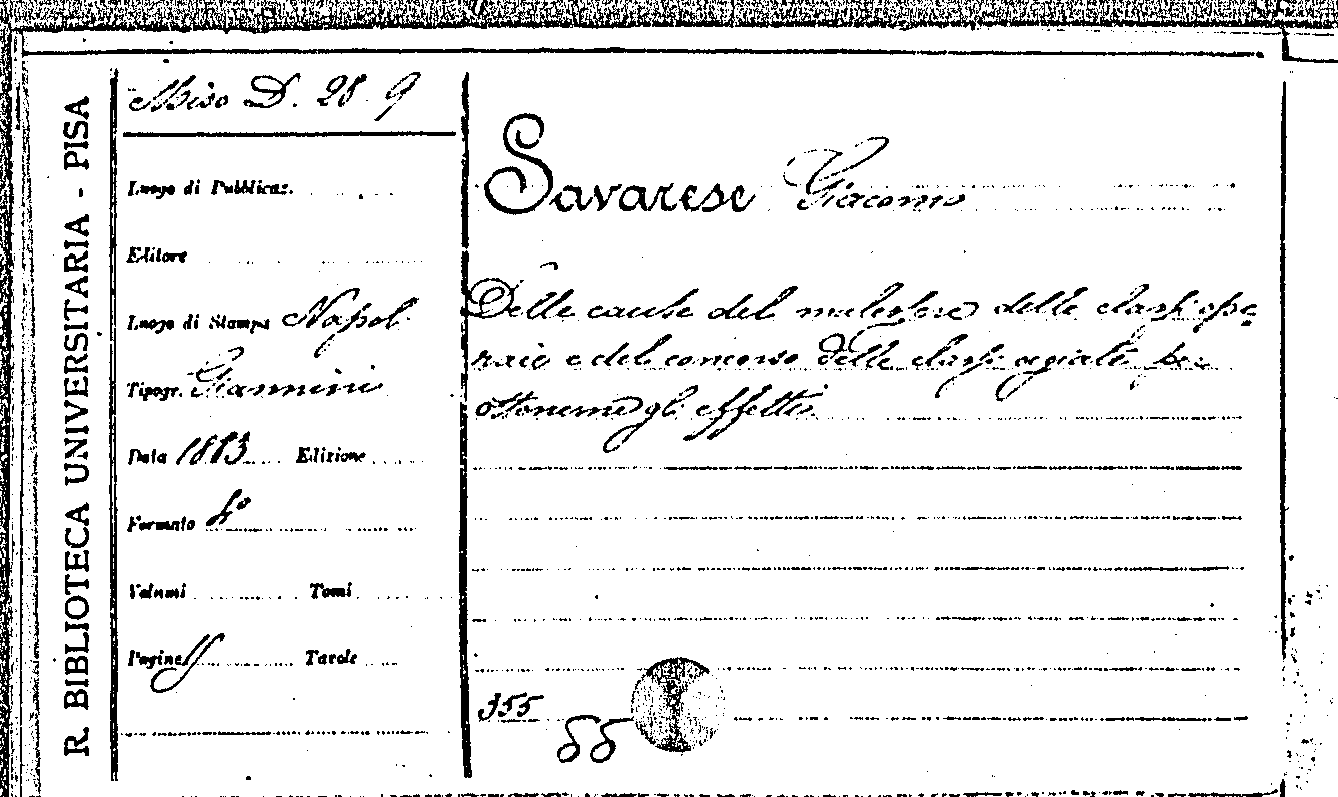 R. BIBLIOTECA UNIVERSITARIA - PISA
Misc D. 28 9
Luogo di Pubblicaz.
Editore
Luogo di Stampa Napol.
Tipogr. Giannini
Data 1883 Edizione
Formato 4°
Volumi Tomi
Pagine Tavole
Savarese Giacomo
Delle cause del malessere delle classi ope
raie e del concorso delle classi agiate per
ottenerne gli effetti
355